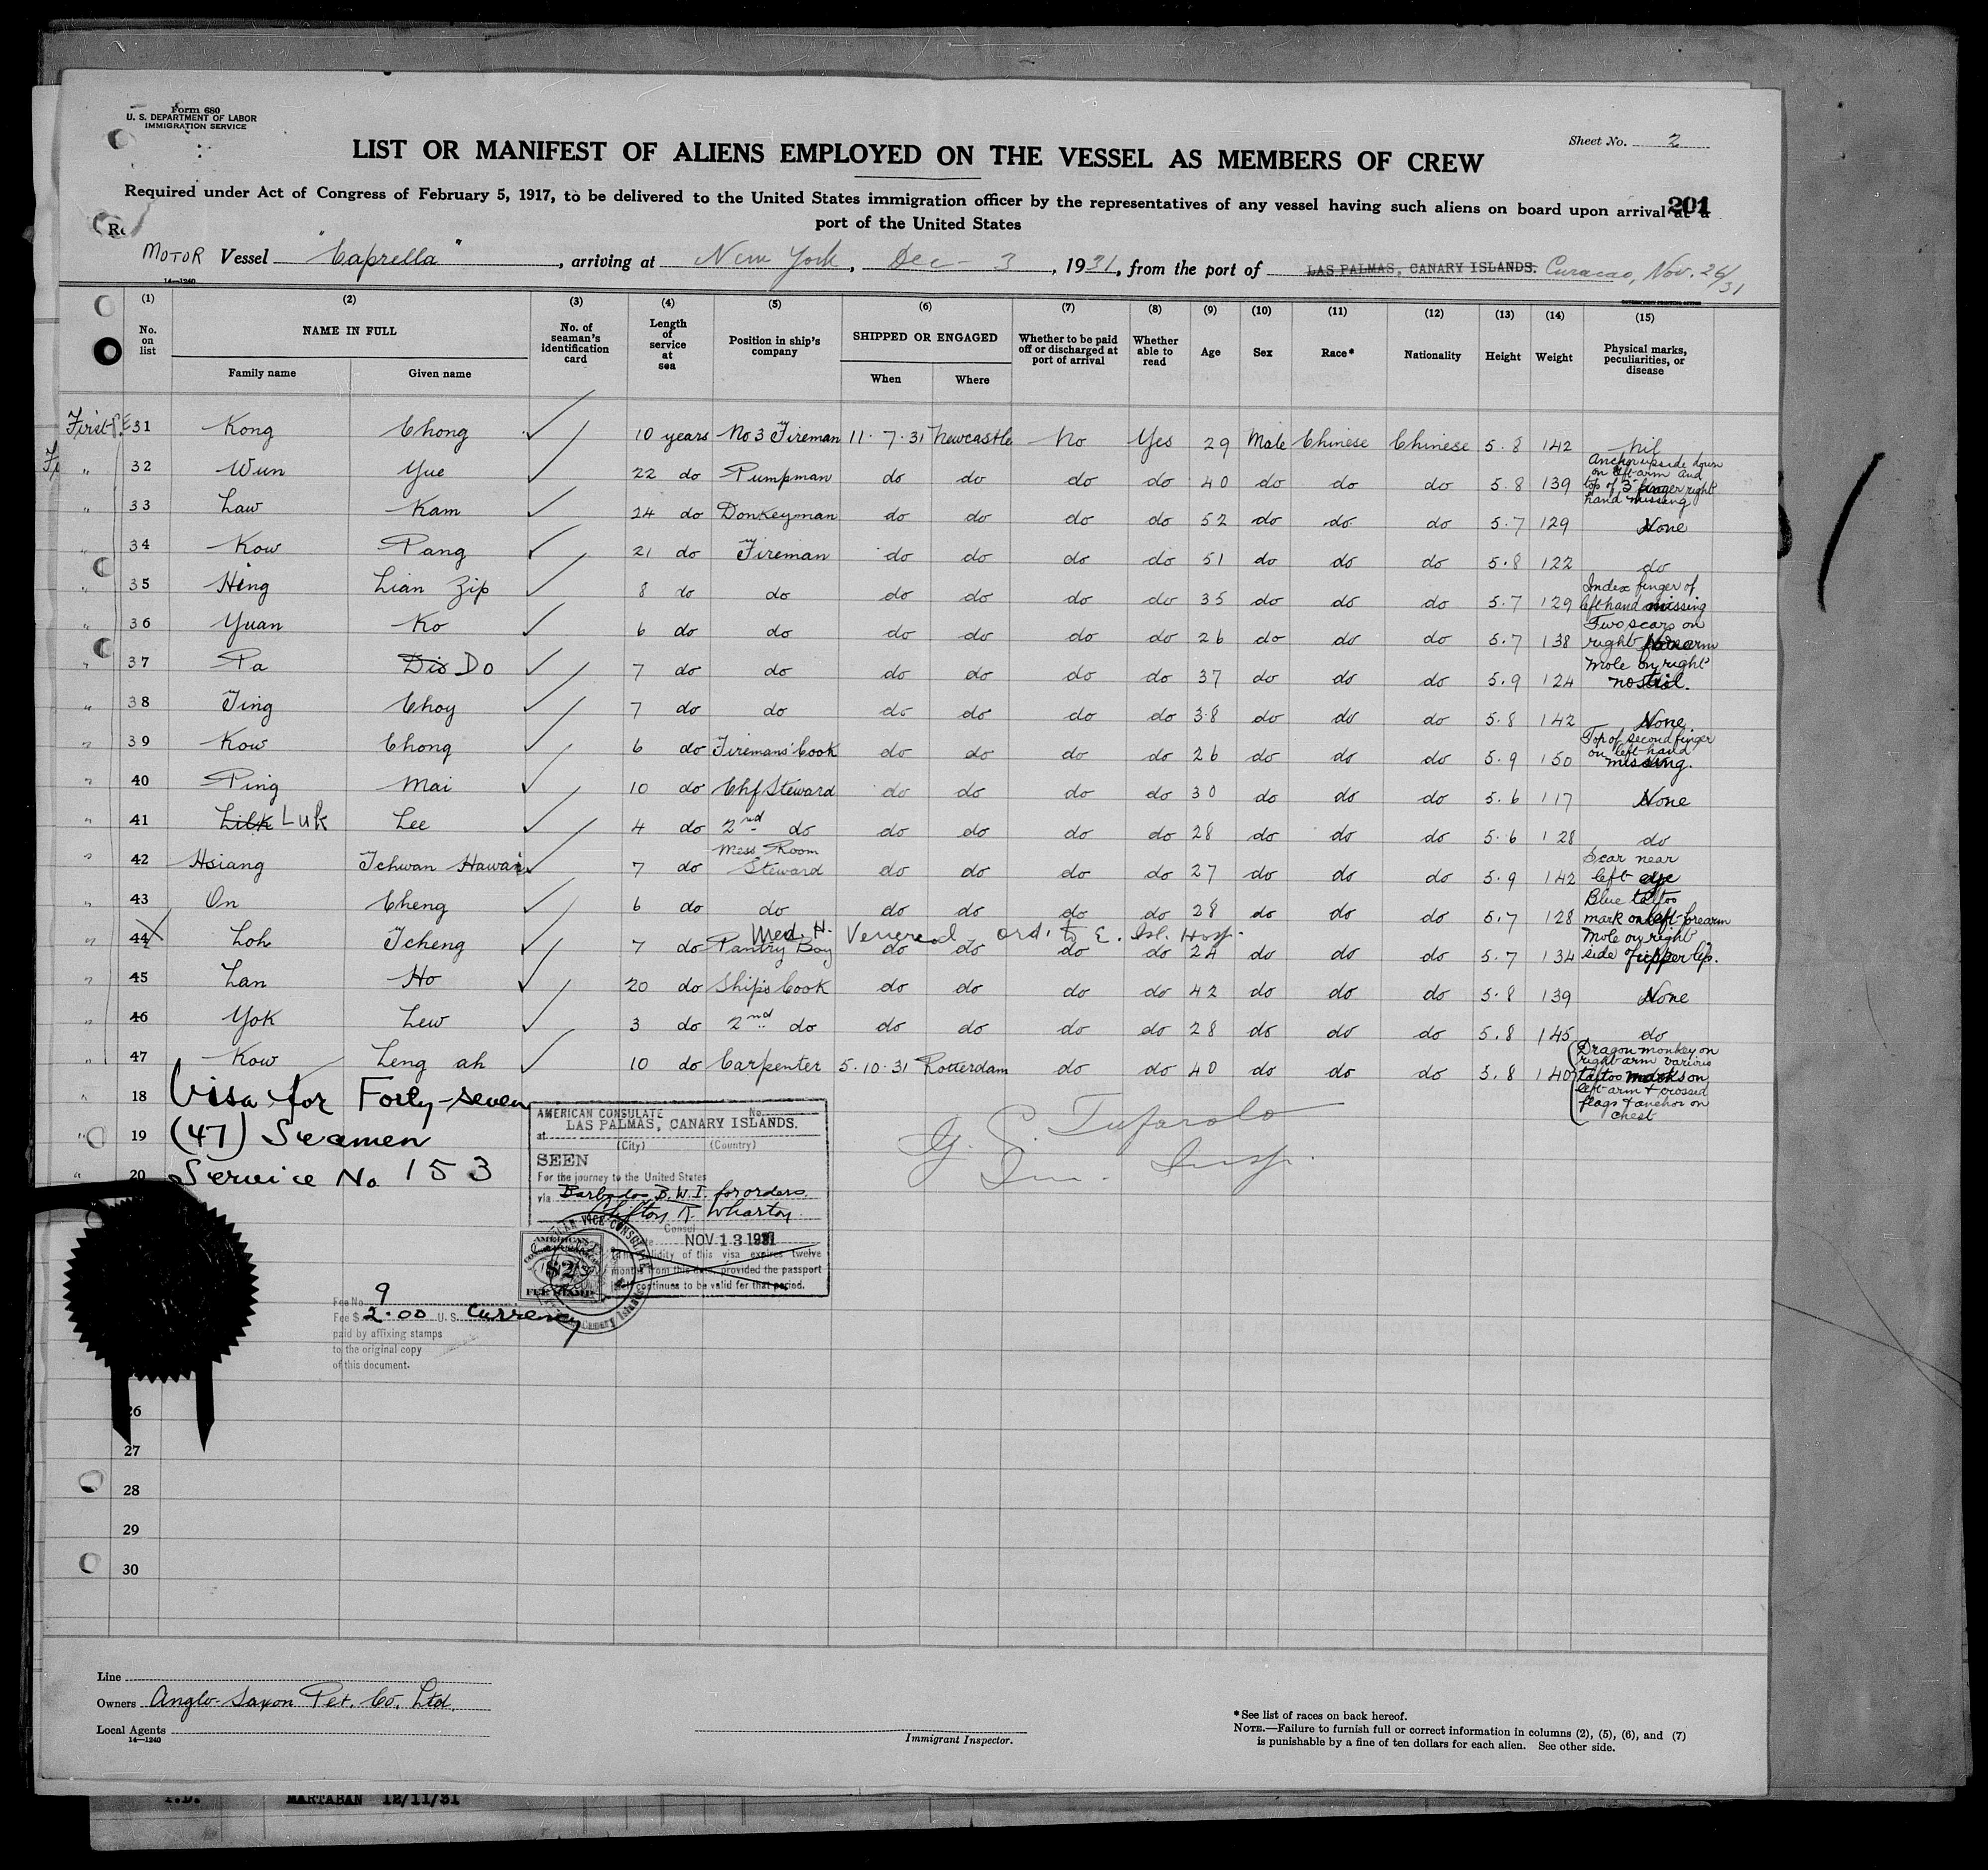 Form 680
U. S. DEPARTMENT OF LABOR
IMMIGRATION SERVICE
Sheet No. 2
LIST OR MANIFEST OF ALIENS EMPLOYED ON THE VESSEL AS MEMBERS OF CREW
Required under Act of Congress of February 5, 1917, to be delivered to the United States immigration officer by the representatives of any vessel having such aliens on board upon arrival at a
port of the United States
201
MOTOR Vessel "Caprella", arriving at New York, Dec - 3, 1931, from the port of LAS PALMAS, CANARY ISLANDS. Curacao, Nov. 26/31
14—1240
(1) (2) (3) (4) (5) (6) (7) (8) (9) (10) (11) (12) (13) (14) (15)
No. on list
NAME IN FULL
Family name Given name
No. of seaman's identification card
Length of service at sea
Position in ship's company
SHIPPED OR ENGAGED
When Where
Whether to be paid off or discharged at port of arrival
Whether able to read
Age Sex Race* Nationality Height Weight
Physical marks, peculiarities, or disease
First P.E 31 Kong Chong 10 years No 3 Fireman 11.7.31 Newcastle No Yes 29 Male Chinese Chinese 5.8 142 Nil
" 32 Wun Yue 22 do Pumpman do do do do 40 do do do 5.8 139 Anchor upside down on left arm and top of 3 finger right hand missing
" 33 Law Kam 24 do Donkeyman do do do do 52 do do do 5.7 129 None
" 34 Kow Pang 21 do Fireman do do do do 51 do do do 5.8 122 do
" 35 Hing Lian Zip 8 do do do do do do 35 do do do 5.7 129 Index finger of left hand missing
" 36 Yuan Ko 6 do do do do do do 26 do do do 5.7 138 Two scars on right forearm
" 37 Pa Dio Do 7 do do do do do do 37 do do do 5.9 124 Mole on right nostril.
" 38 Ting Choy 7 do do do do do do 38 do do do 5.8 142 None
" 39 Kow Chong 6 do Firemans' Cook do do do do 26 do do do 5.9 150 Top of second finger on left hand missing.
" 40 Ping Mai 10 do Chf Steward do do do do 30 do do do 5.6 117 None
" 41 Lilk Luk Lee 4 do 2nd do do do do do 28 do do do 5.6 128 do
" 42 Hsiang Tchwan Hawai 7 do Mess Room Steward do do do do 27 do do do 5.9 142 Scar near left eye
" 43 On Cheng 6 do do do do do do 28 do do do 5.7 128 Blue tattoo mark on left forearm
Med. H. Venereal ord. to E. Isl. Hosp.
" 44 Loh Tcheng 7 do Pantry Boy do do do do 24 do do do 5.7 134 Mole on right side of upper lip.
" 45 Lan Ho 20 do Ship's Cook do do do do 42 do do do 5.8 139 None
" 46 Yok Lew 3 do 2nd do do do do do 28 do do do 5.8 145 do
" 47 Kow Leng ah 10 do Carpenter 5.10.31 Rotterdam do do 40 do do do 5.8 140 Dragon monkey on right arm various tattoo marks on left arm + crossed flags + anchor on chest
18 Visa for Forty-seven
19 (47) Seamen
20 Service No 153
AMERICAN CONSULATE No.
at LAS PALMAS, CANARY ISLANDS.
(City) (Country)
SEEN
For the journey to the United States
via Barbados B.W.I. for orders.
Clifton R. Wharton
Consul
NOV. 13 1931
The validity of this visa expires twelve
months from this date, provided the passport
itself continues to be valid for that period.
AMERICAN
$2
FEE STAMP
G. S. Tufarolo
Im. Insp.
Fee No. 9
Fee $ 2.00 U. S. Currency
paid by affixing stamps
to the original copy
of this document.
26
27
28
29
30
Line
Owners Anglo-Saxon Pet. Co. Ltd.
Local Agents
14—1240
Immigrant Inspector.
*See list of races on back hereof.
NOTE.—Failure to furnish full or correct information in columns (2), (5), (6), and (7)
is punishable by a fine of ten dollars for each alien. See other side.
MARTABAN 12/11/31